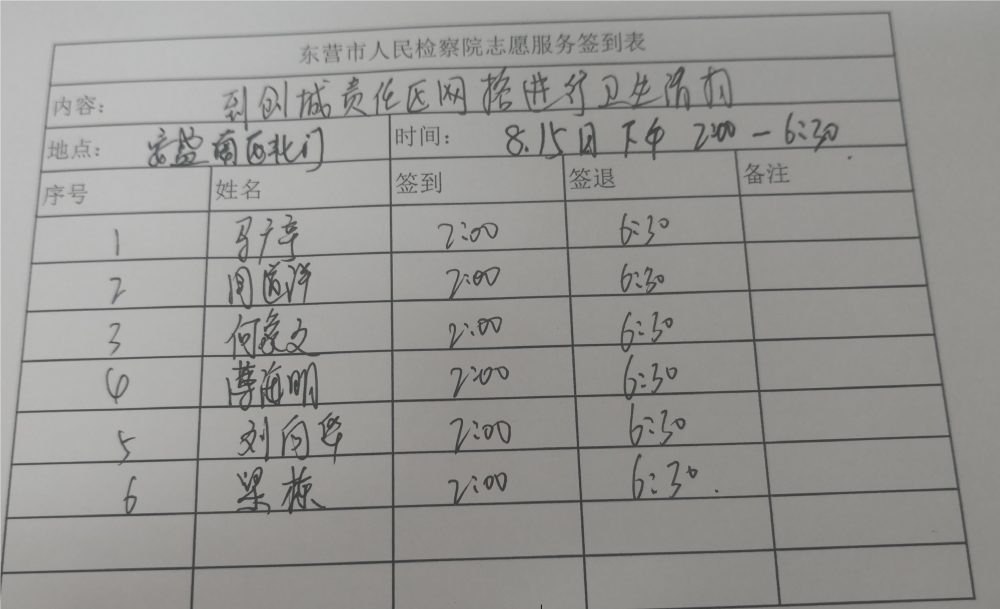 东营市人民检察院志愿服务签到表
内容： 到创城责任区网格进行卫生清扫
地点： 安盘南区北门 时间： 8.15日下午 2:00-6:30.
序号 姓名 签到 签退 备注
1 马广幸 2:00 6:30
2 周道洋 2:00 6:30
3 何爱文 2:00 6:30
4 薄海明 2:00 6:30
5 刘向华 2:00 6:30
6 梁栋 2:00 6:30.